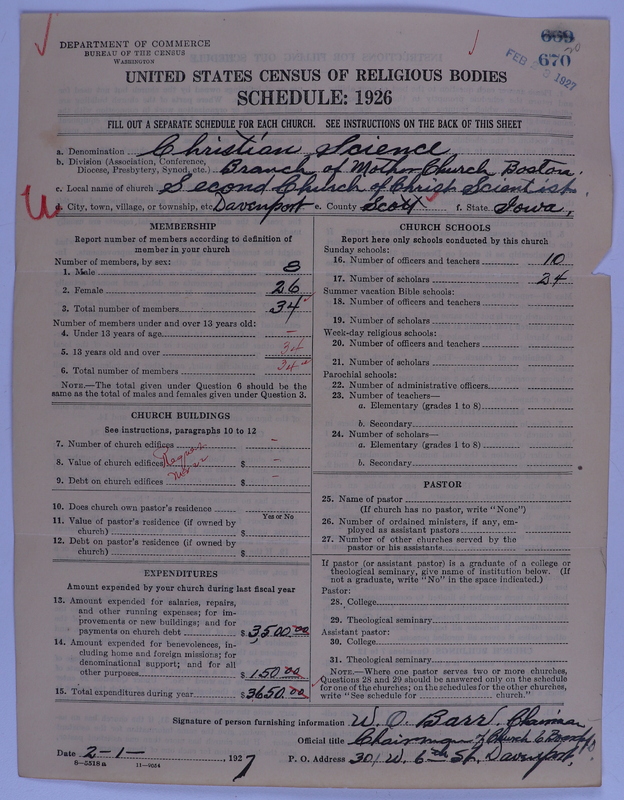 DEPARTMENT OF COMMERCE
BUREAU OF THE CENSUS
WASHINGTON
669
670
FEB 1927
UNITED STATES CENSUS OF RELIGIOUS BODIES
SCHEDULE: 1926
FILL OUT A SEPARATE SCHEDULE FOR EACH CHURCH. SEE INSTRUCTIONS ON THE BACK OF THIS SHEET
a. Denomination Christian Science
b. Division (Association, Conference, Diocese, Presbytery, Synod, etc.) Branch of Mother Church, Boston.
c. Local name of church Second Church of Christ Scientist.
d. City, town, village, or township, etc. Davenport e. County Scott f. State Iowa,
MEMBERSHIP
Report number of members according to definition of
member in your church
Number of members, by sex:
1. Male 8
2. Female 26
3. Total number of members 34
Number of members under and over 13 years old:
4. Under 13 years of age –
5. 13 years old and over 34
6. Total number of members 34
NOTE.—The total given under Question 6 should be the
same as the total of males and females given under Question 3.
CHURCH BUILDINGS
See instructions, paragraphs 10 to 12
7. Number of church edifices –
8. Value of church edifices $ –
9. Debt on church edifices $ –
10. Does church own pastor's residence
Yes or No
11. Value of pastor's residence (if owned by
church) $
12. Debt on pastor's residence (if owned by
church) $
EXPENDITURES
Amount expended by your church during last fiscal year
13. Amount expended for salaries, repairs,
and other running expenses; for im-
provements or new buildings; and for
payments on church debt $ 3,500.00
14. Amount expended for benevolences, in-
cluding home and foreign missions; for
denominational support; and for all
other purposes $ 150.00
15. Total expenditures during year $ 3650.00
CHURCH SCHOOLS
Report here only schools conducted by this church
Sunday schools:
16. Number of officers and teachers 10
17. Number of scholars 24
Summer vacation Bible schools:
18. Number of officers and teachers
19. Number of scholars
Week-day religious schools:
20. Number of officers and teachers
21. Number of scholars
Parochial schools:
22. Number of administrative officers
23. Number of teachers—
a. Elementary (grades 1 to 8)
b. Secondary
24. Number of scholars—
a. Elementary (grades 1 to 8)
b. Secondary
PASTOR
25. Name of pastor
(If church has no pastor, write "None")
26. Number of ordained ministers, if any, em-
ployed as assistant pastors
27. Number of other churches served by the
pastor or his assistants
If pastor (or assistant pastor) is a graduate of a college or
theological seminary, give name of institution below. (If
not a graduate, write "No" in the space indicated.)
Pastor:
28. College
29. Theological seminary
Assistant pastor:
30. College
31. Theological seminary
NOTE.—Where one pastor serves two or more churches,
Questions 28 and 29 should be answered only on the schedule
for one of the churches; on the schedules for the other churches,
write "See schedule for church."
Signature of person furnishing information W. O. Barr, Chairman
Official title Chairman of Church
Date 2-1- , 1927 P. O. Address 301 W. 6th St, Davenport,
8—5518a 11—9054